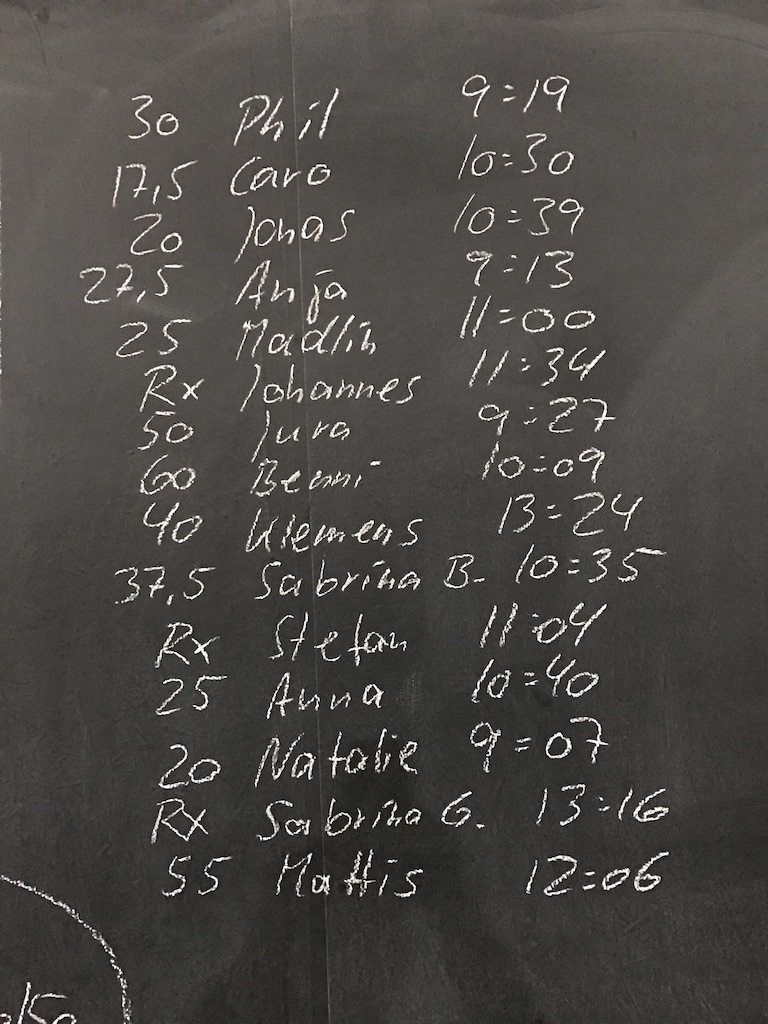 30 Phil 9:19
17,5 Caro 10:30
20 Jonas 10:39
27,5 Anja 9:13
25 Madlin 11:00
Rx Johannes 11:34
50 Jura 9:27
60 Benni 10:09
40 Klemens 13:24
37,5 Sabrina B. 10:35
Rx Stefan 11:04
25 Anna 10:40
20 Natalie 9:07
Rx Sabrina G. 13:16
55 Mattis 12:06